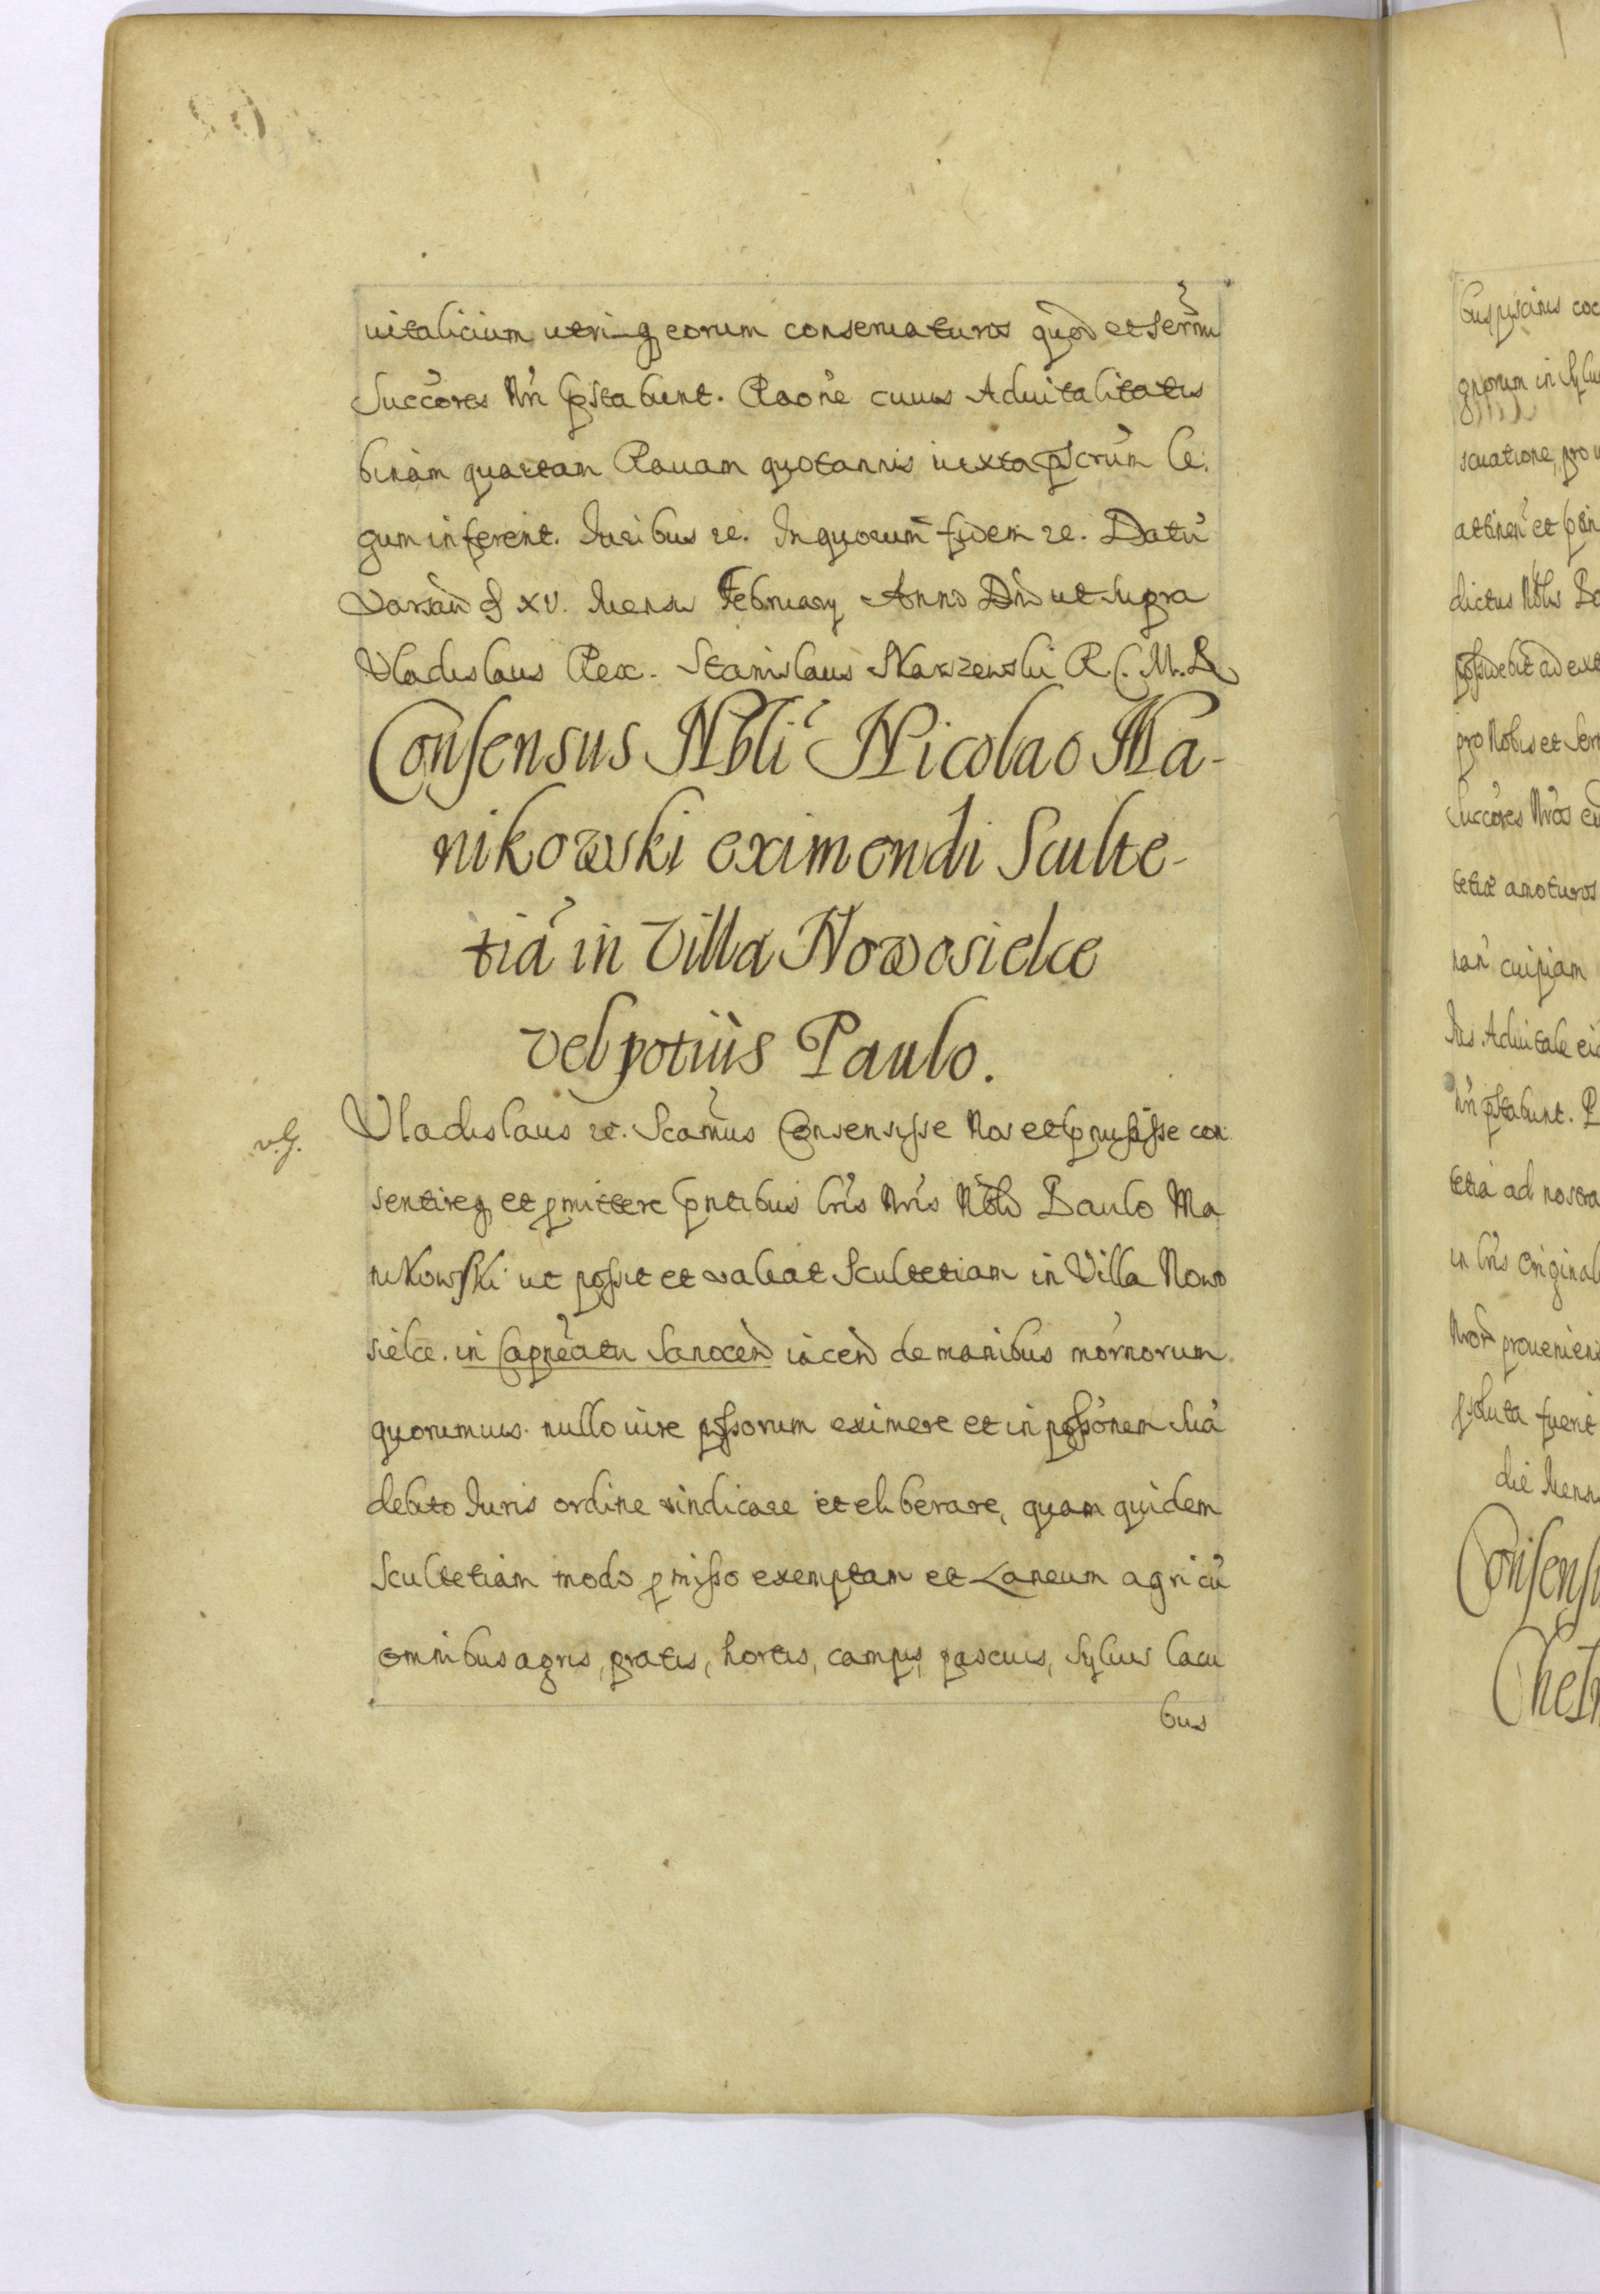 uitalicium utriq eorum conseruaturos quod et Sermi
Succores Nri pstabunt. Raone cuius Aduitalitatis
binam quartam Rauam quotannis iuxta pscrum le:
gum inferent. Iuribus re. In quorum fidem re. Datu
Varsau XV. Mensis February Anno Dni ut supra
Vladislaus Rex. Stanislaus Skarzewski R. C. M. R
Consensus Nbli Nicolao Ma-
nikowski eximendi Sculte-
tia in Villa Nowosielce
vel potius Paulo.
Vladislaus re. Scamus Consensisse Nos et pmisisse con
sentireq et pmittere pntibus lris Nris Nobli Paulo Ma
nikowski ut possit et valeat Scultetiam in Villa Nowo
sielce. in Capneatu Sanocen iacen de manibus mornorum
quorumuis nullo iure pssorum eximere et in possonem sua
debito Iuris ordine vindicare et eliberare, quam quidem
Scultetiam modo pmisso exemptam et Laneum agri cu
omnibus agris, pratis, hortis, campis, pascuis, Syluis lacu
bus
Buspiscinis
gnorum in
scuatione, pro
attinen et
dictus Nblis
possidebit ad
pro Nobis et
Succores Nros
tetia amoturos
nan cuipiam
Ius Aduitale
Nri pstabunt.
tetia ad nostra
in lris
proueniens
psoluta fuerit
die Mensis